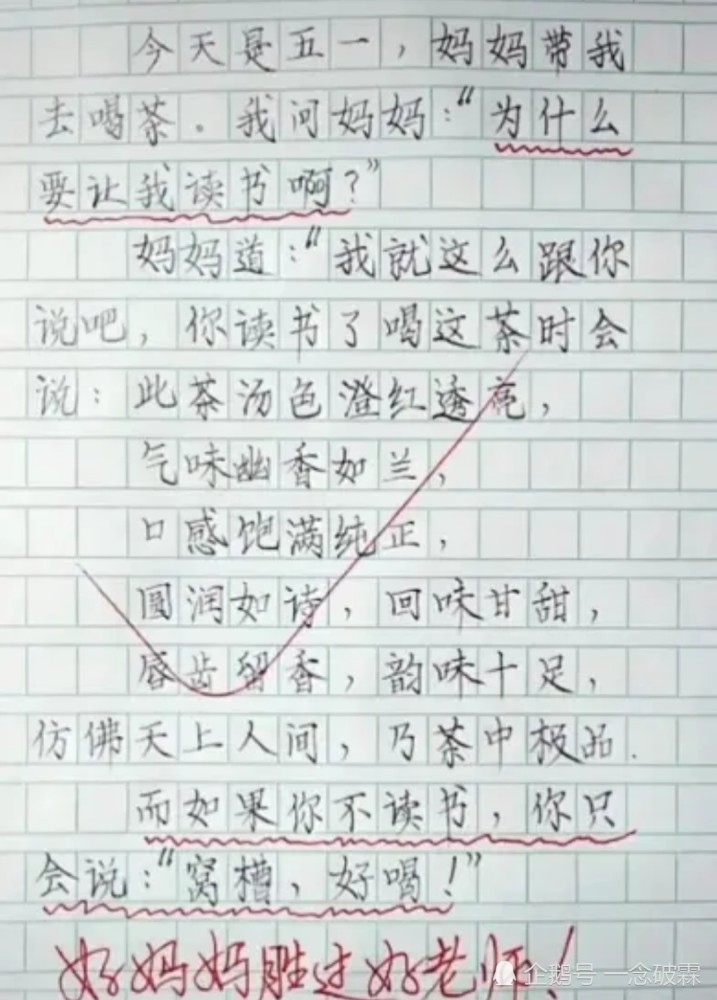 今天是五一，妈妈带我
去喝茶。我问妈妈：“为什么
要让我读书啊？”
妈妈道：“我就这么跟你
说吧，你读书了喝这茶时会
说：此茶汤色澄红透亮，
气味幽香如兰，
口感饱满纯正，
圆润如诗，回味甘甜，
唇齿留香，韵味十足，
仿佛天上人间，乃茶中极品.
而如果你不读书，你只
会说：“窝槽，好喝！”
好妈妈胜过好老师！
企鹅号 一念破霖